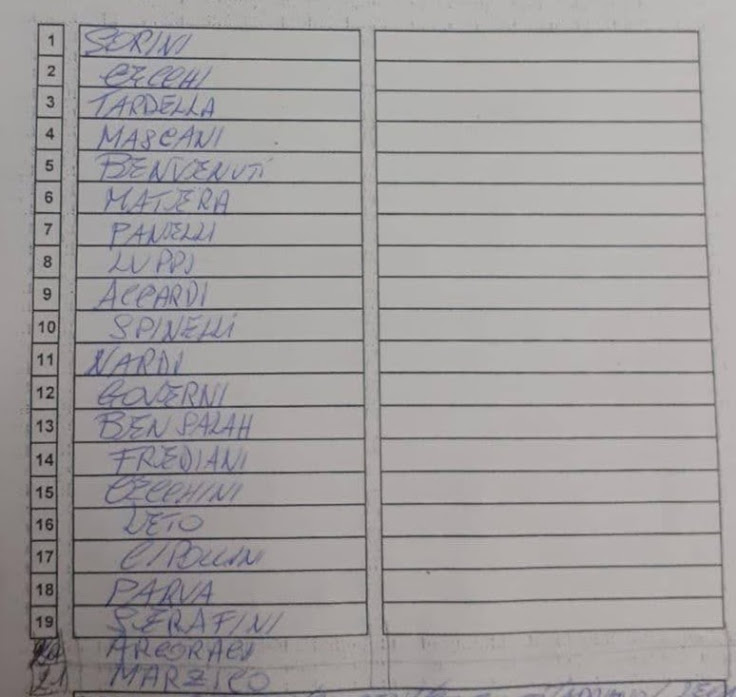 1 SORINI
2 CECCHI
3 TARDELLA
4 MASCANI
5 BENVENUTI
6 MATERA
7 PANELLI
8 LUPPI
9 ACCARDI
10 SPINELLI
11 NARDI
12 GOVERNI
13 BEN SALAH
14 FREDIANI
15 CECCHINI
16 LETO
17 CIPOLLINI
18 PARVA
19 SERAFINI
20
21 MARZICO